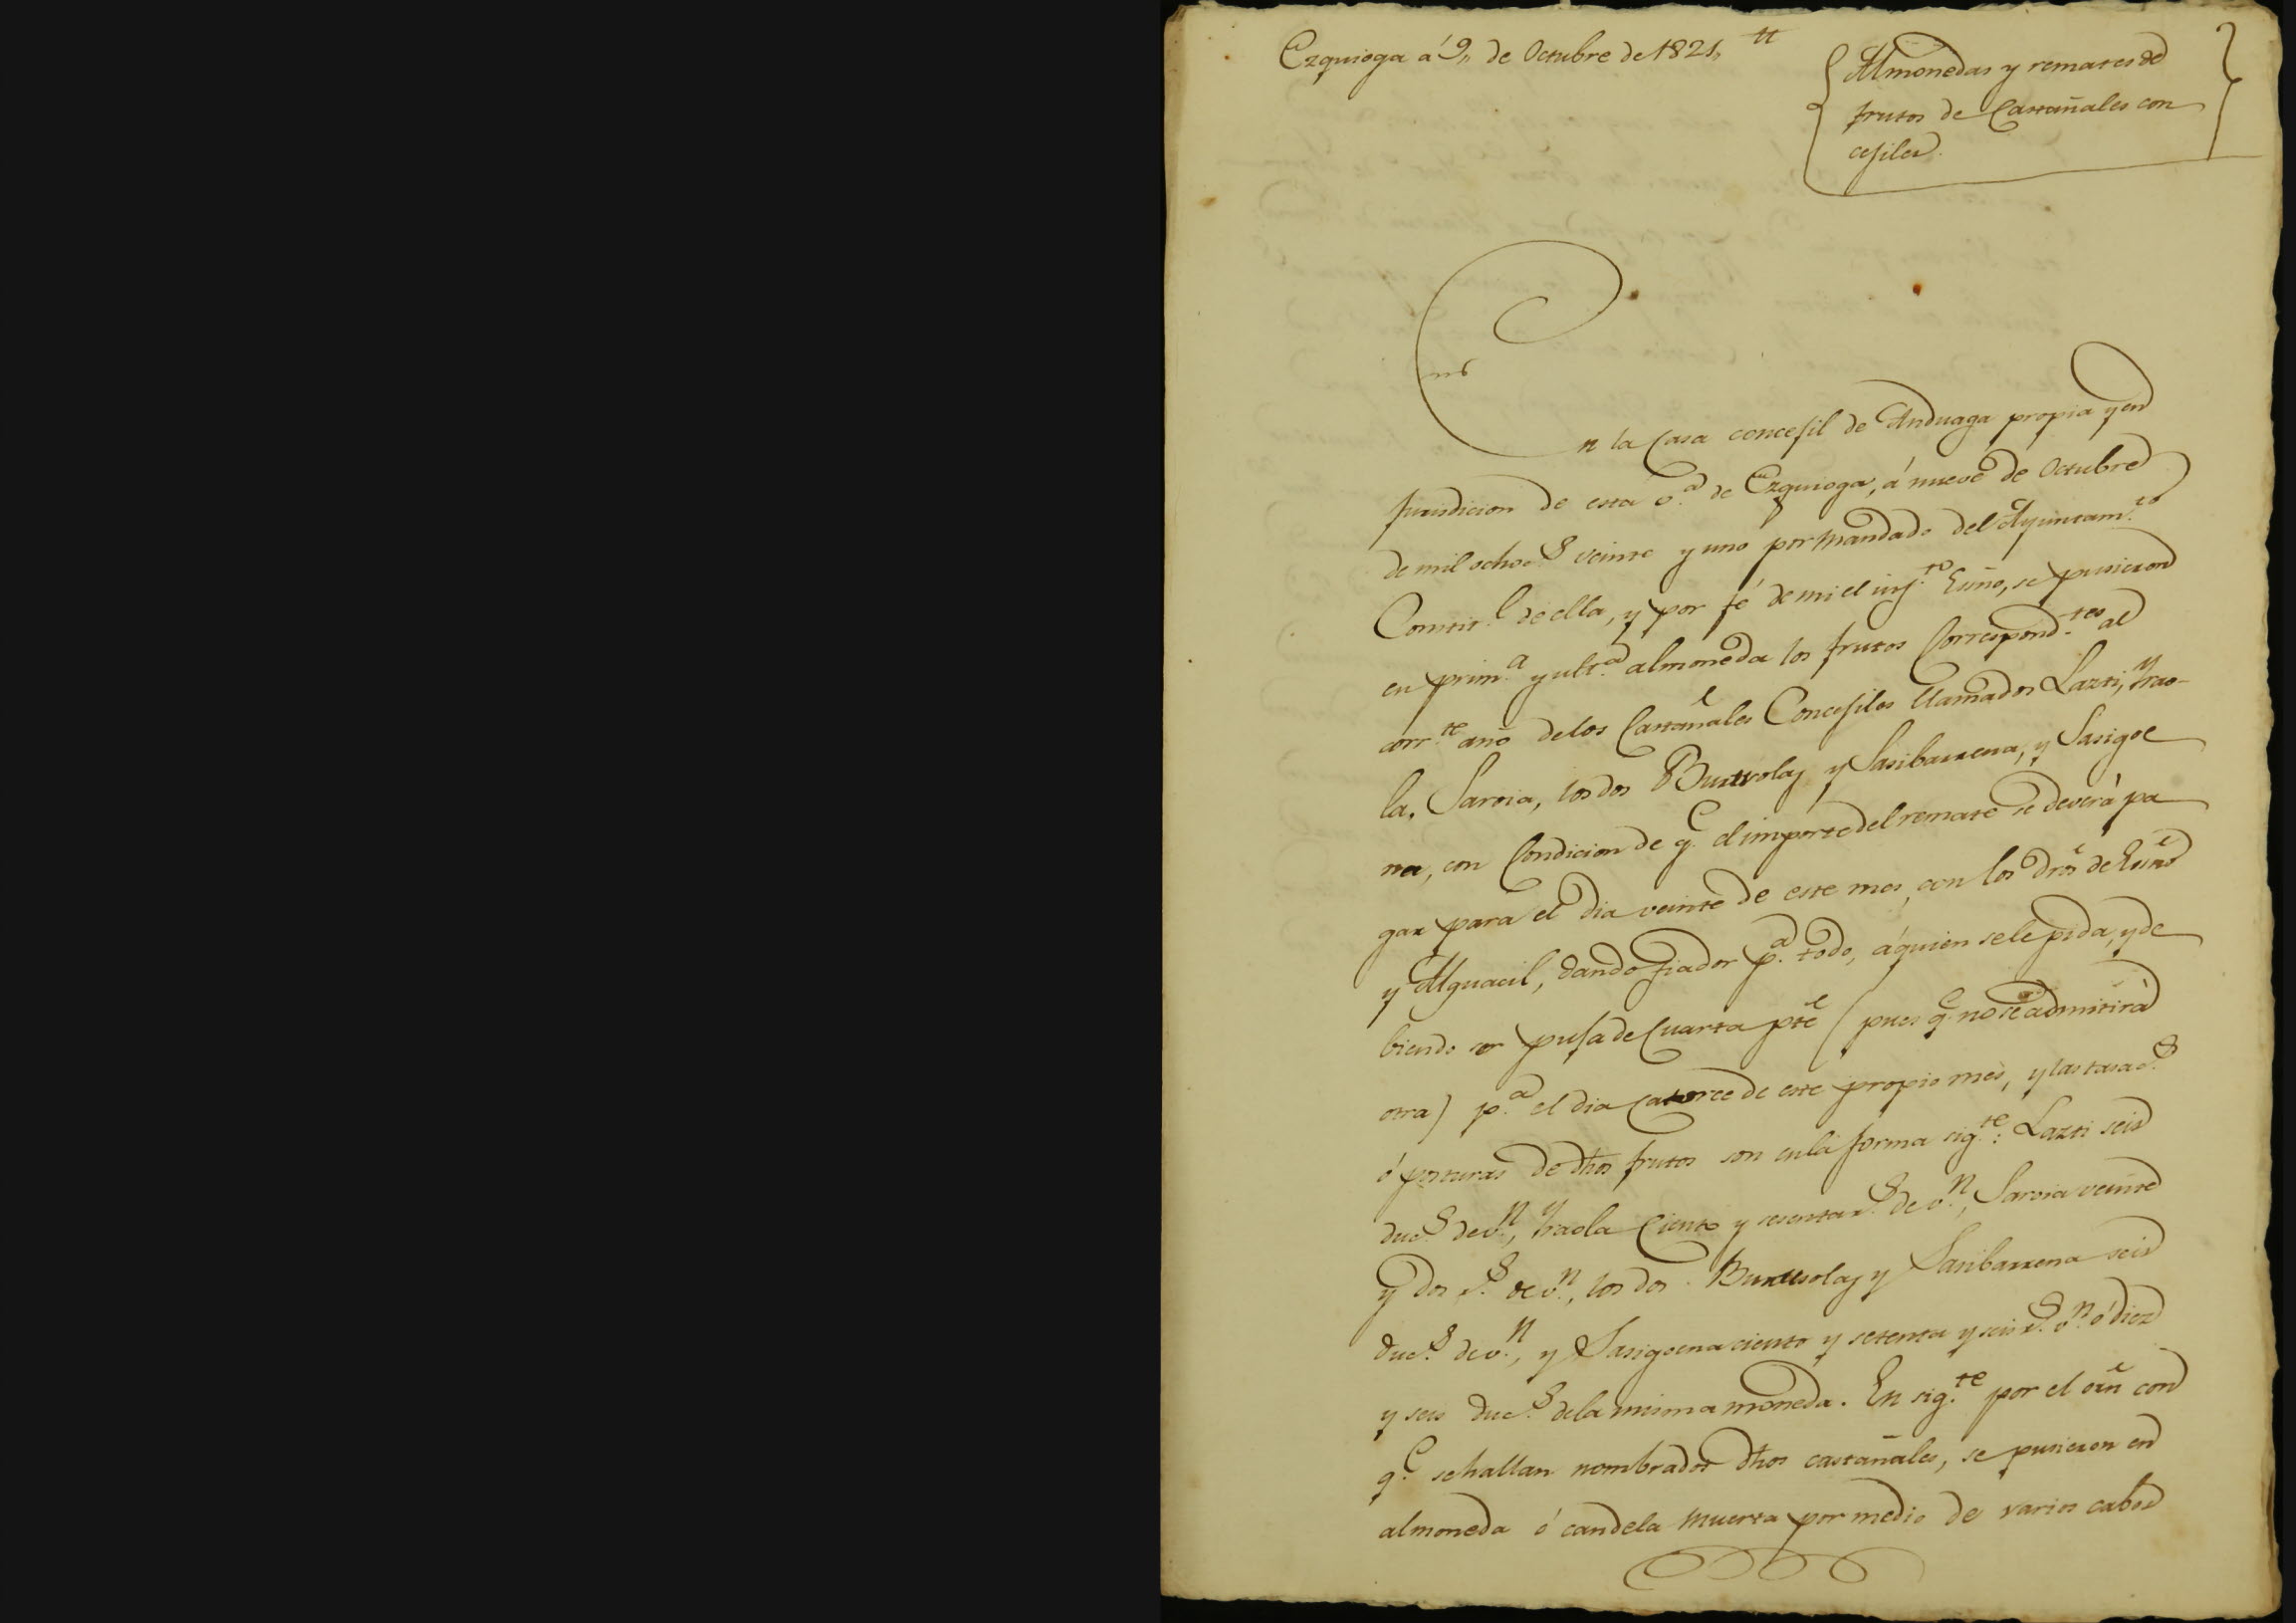 Ezquioga á 9,, de Octubre de 1821,,
Almonedas y remates de
frutos de Castañales con
cejiles.
En la Casa concejil de Anduaga propia y en
Jurisdicion de esta v.ª de Ezquioga, á nueve de Octubre
de mil ochoc.s veinte y uno por mandado del Ayuntam.to
Constit.l de ella, y por fé de mi el inf.to Esno, se pusieron
en prim.a y ult.a almoneda los frutos Correspond.tes al
corr.te año de los Castañales Concejiles llamados Lazti, Yrao-
la, Saroia, los dos Burusolaj y Sasibarrena, y Sasigoe
na, con Condicion de q.e el importe del remate se deverá pa
gar para el dia veinte de este mes, con los dros de Esno
y Alguacil, dando fiador p.a todo, á quien se le pida, y de
biendo ser puja de Cuarta pte (pues q.e no se admitirá
otra) p.a el dia Catorce de este propio mes, y las tasac.s
ó posturas de dhos frutos son en la forma sig.te: Lazti seis
duc.s de v.n, Yraola Ciento y sesenta r.s de v.n, Saroia veinte
y dos r.s de v.n, los dos Burusolaj y Sasibarrena seis
duc.s de v.n, y Sasigoena ciento y setenta y seis r.s v.n ó diez
y seis duc.s de la misma moneda. En sig.te por el orn con
q.e se hallan nombrados dhos castañales, se pusieron en
almoneda ó candela muerta por medio de varios cabos